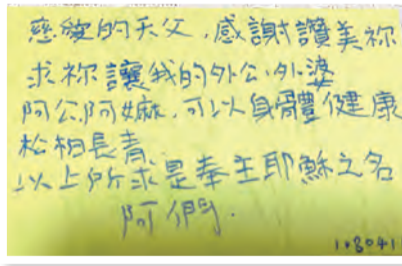 慈愛的天父,感謝讚美祢
求祢讓我的外公、外婆
阿公、阿嬤,可以身體健康
松柏長青
以上所求是奉主耶穌之名
阿們.
108041